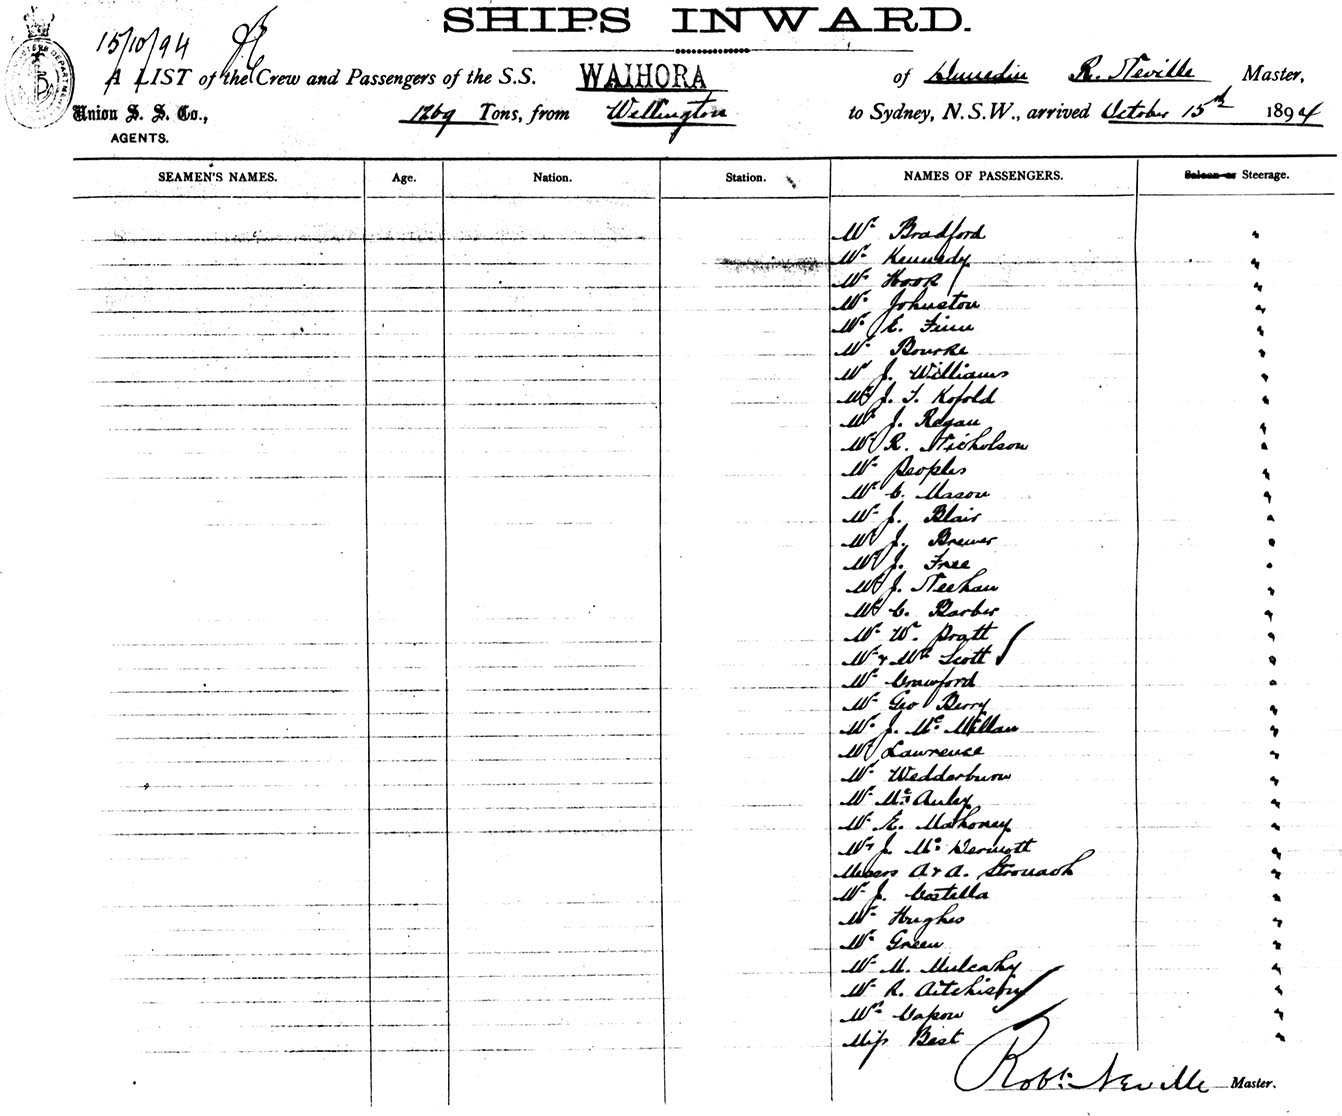 SHIPS INWARD.
15/10/94
A LIST of the Crew and Passengers of the S.S. WAIHORA of Dunedin R. Neville Master,
Union S. S. Co., 1269 Tons, from Wellington to Sydney, N.S.W., arrived October 15th 1894
AGENTS.
SEAMEN'S NAMES. Age. Nation. Station. NAMES OF PASSENGERS. Saloon or Steerage.
Mr Bradford "
Mr Kennedy "
Mr Hook "
Mr Johnston "
Mr E. Finn "
Mr Bourke "
Mr J. Williams "
Mr J. T. Kofold "
Mr J. Regan "
Mr R. Nicholson "
Mr Peoples "
Mr C. Mason "
Mr J. Blair "
Mr J. Brewer "
Mr J. Free "
Mr J. Neehan "
Mr C. Barber "
Mr W. Pratt "
Mr & Mrs Scott "
Mr Crawford "
Mr Geo Berry "
Mr J. McMillan "
Mr Lawrence "
Mr Wedderburn "
Mr McAuley "
Mr E. Mahoney "
Mr J. McDermott "
Messrs A & A. Stronach "
Mr J. Costella "
Mr Hughes "
Mr Green "
Mr M. Mulcahy "
Mr R. Aitchison "
Mrs Capon "
Miss Best "
Robt. Neville Master.